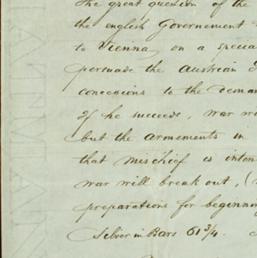 The great question of the
the english Governement
to Vienna, on a specia
persuade the Austrian
concessions to the deman
If he succeeds, war wi
but the armements in
that mischief is inten
war will break out, (
preparations for beginnin
Silver in Bars 61 3/4.